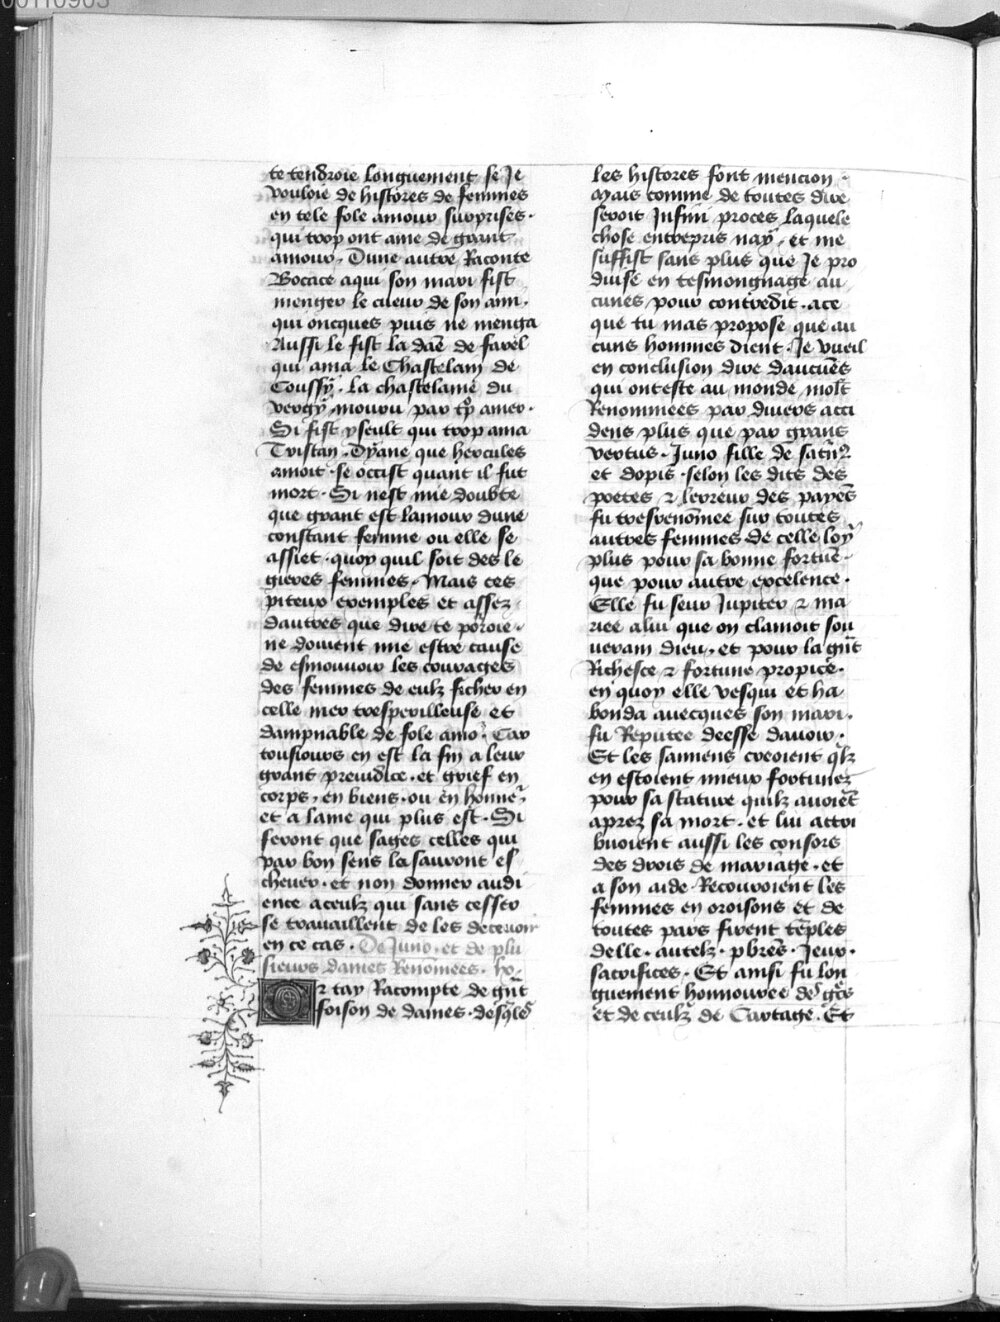 00110903
te tendroie longuement se Je
vouloie de histores de femmes
en tele fole amour surprises.
qui trop ont ame de grant
amour. Dune autre Raconte
Bocace aqui son mari fist
menger le cueur de son ami.
qui oncques puis ne menga
Aussi le fist la dãe de faiel
qui ama le Chastelain de
Coussy. la chastelaine du
vergy mouru par tp̃ amer.
Si fist yseult qui trop ama
Tristan. Dyane que hercules
amoit. se occist quant il fut
mort. Si nest mie doubte
que grant est lamour dune
constant femme ou elle se
assiet. quoy quil soit des le
gieres femmes. Mais ces
piteux exemples et assez
dautres que dire te poroie.
ne doivent mie estre cause
de esmouvoir les courages
des femmes de eulz ficher en
celle mer tresperilleuse et
dampnable de fole amoʳ. Car
tousiours en est la fin a leur
grant preiudice. et grief en
corps. en biens. ou en honneʳ.
et a lame qui plus est. Si
feront que sages celles qui
par bon sens le sauront es
chever. et non donner audi
ence a ceulz qui sans cesser
se travaillent de les decevoir
en ce cas. De Juno. et de plu
sieurs dames Renõmees.
Or tay Racompte de gñt
foison de dames. desq̃les
les histores font mencion.
Mais comme de toutes dire
seroit Infini proces laquele
chose entrepris nay. et me
suffist sans plus que Je pro
duise en tesmongnage au
cunes pour contredit. a ce
que tu mas propose que au
cuns hommes dient. Je vueil
en conclusion dire daucũes
qui ont este au monde molt
Renommees par divers acci
dens plus que par grans
vertus. Juno fille de satñe
et dopis. selon les dits des
poetes & lerreur des payẽs
fu tresrenõmee sur toutes
autres femmes de celle loy
plus pour sa bonne fortuñ.
que pour autre excelence.
Elle fu seur Jupiter & ma
riee a lui que on clamoit sou
verain dieu. et pour la gñt
Richesce & fortune propice.
en quoy elle vesqui et ha
bonda avecques son mari.
fu Reputee deesse davoir.
Et les samiens creoient q̃lz
en estoient mieux fortunez
pour sa stature quilz avoiẽt
aprez sa mort. et lui attri
buoient aussi les consors
des drois de mariage. et
a son aide Recouroient les
femmes en oroisons et de
toutes pars firent tẽples
delle. autelz. pbres. Jeux.
sacrifices. Et ainsi fu lon
guement honnouree des gcs̃
et de ceulz de Cartage. Et